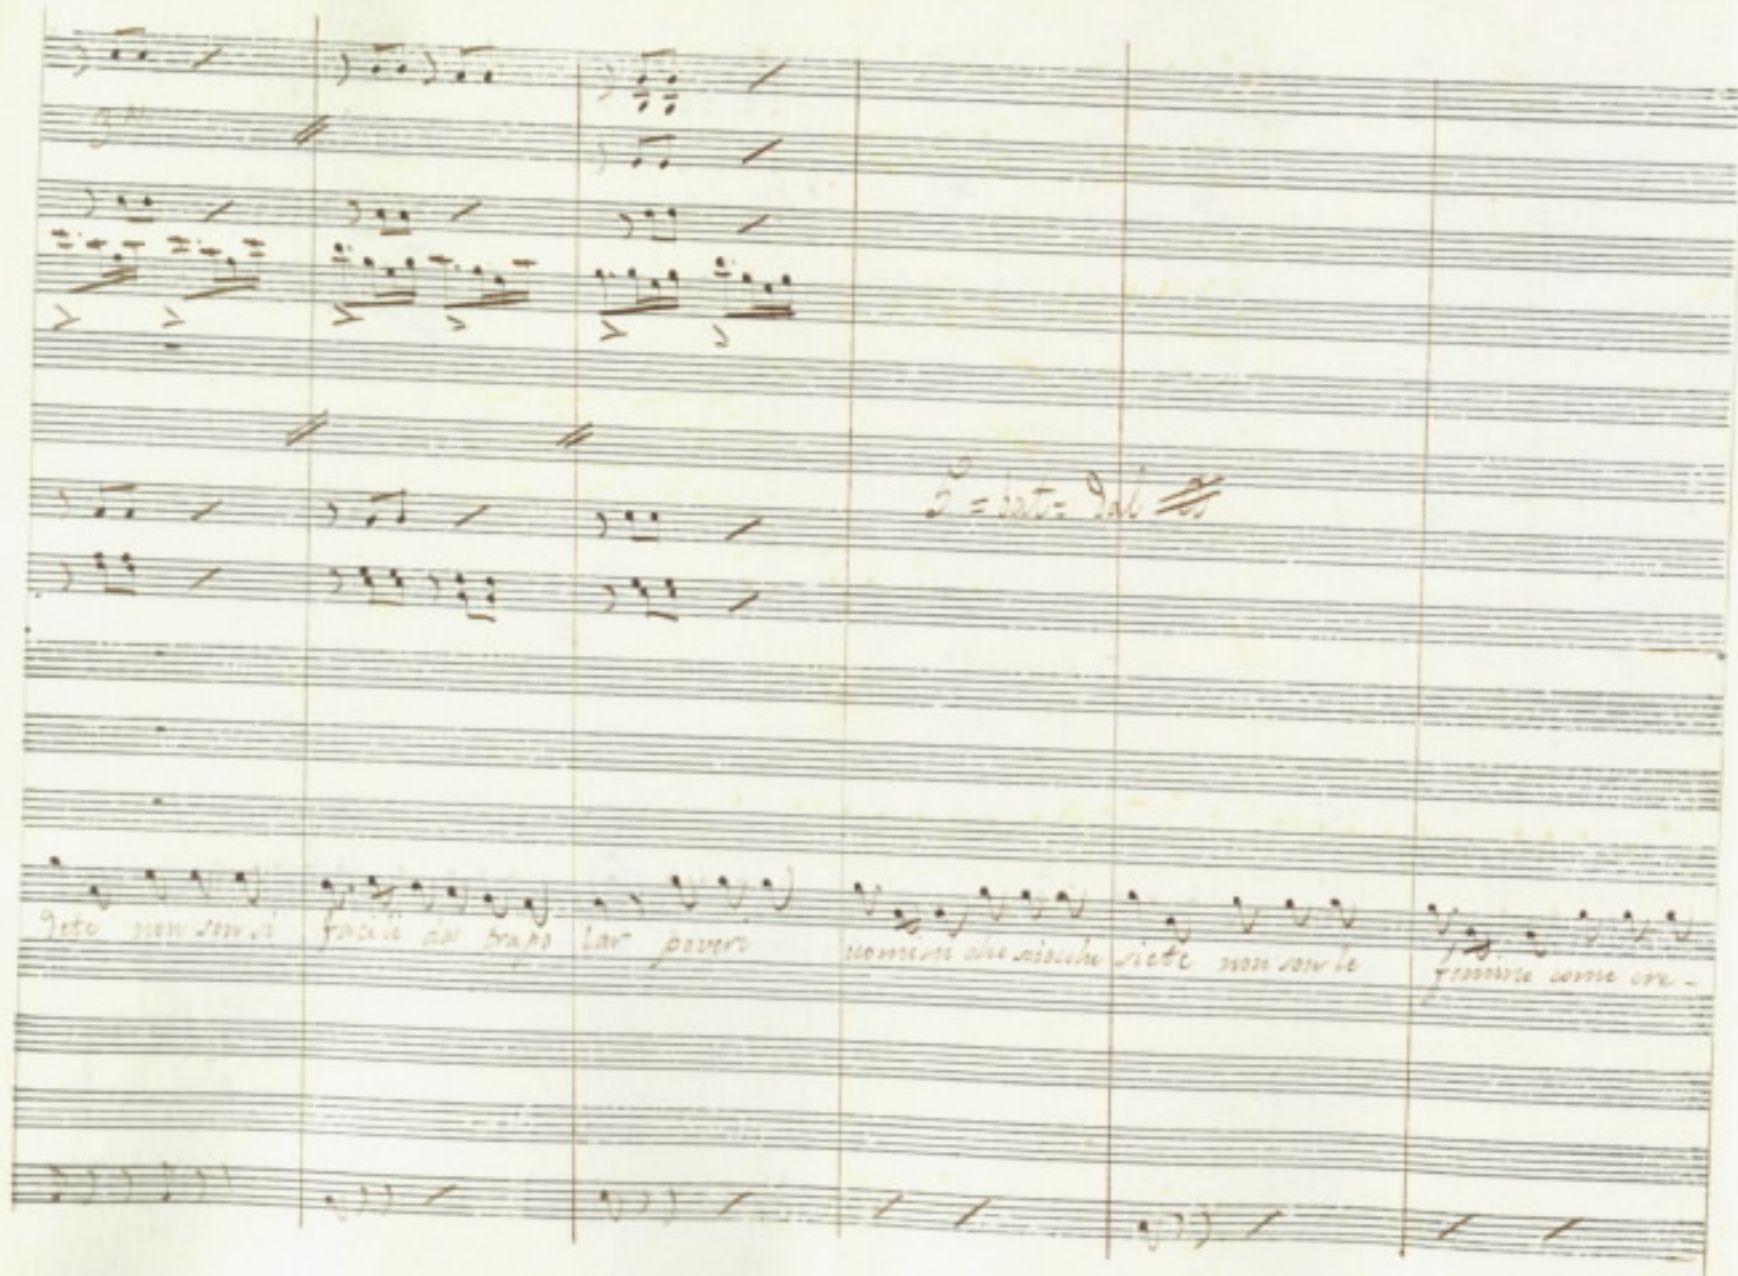 3º
5 = bat = Dal
dete non son si facili da trapo lar poveri uomini che sciocchi siete non son le femine come cre-